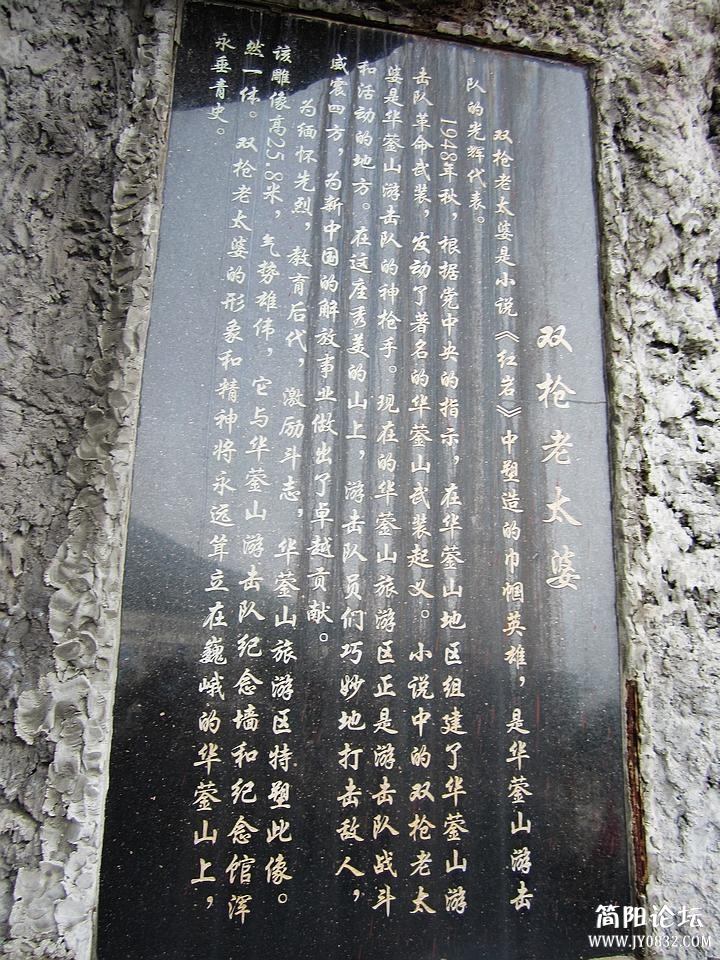 双枪老太婆
双枪老太婆是小说《红岩》中塑造的巾帼英雄，是华蓥山游击
队的光辉代表。
1948年秋，根据党中央的指示，在华蓥山地区组建了华蓥山游
击队革命武装，发动了著名的华蓥山武装起义。小说中的双枪老太
婆是华蓥山游击队的神枪手。现在的华蓥山旅游区正是游击队战斗
和活动的地方。在这座秀美的山上，游击队员们巧妙地打击敌人，
威震四方，为新中国的解放事业做出了卓越贡献。
为缅怀先烈，教育后代，激励斗志，华蓥山旅游区特塑此像。
该雕像高25.8米，气势雄伟，它与华蓥山游击队纪念墙和纪念馆浑
然一体。双枪老太婆的形象和精神将永远耸立在巍峨的华蓥山上，
永垂青史。
简阳论坛
WWW.JY0832.COM